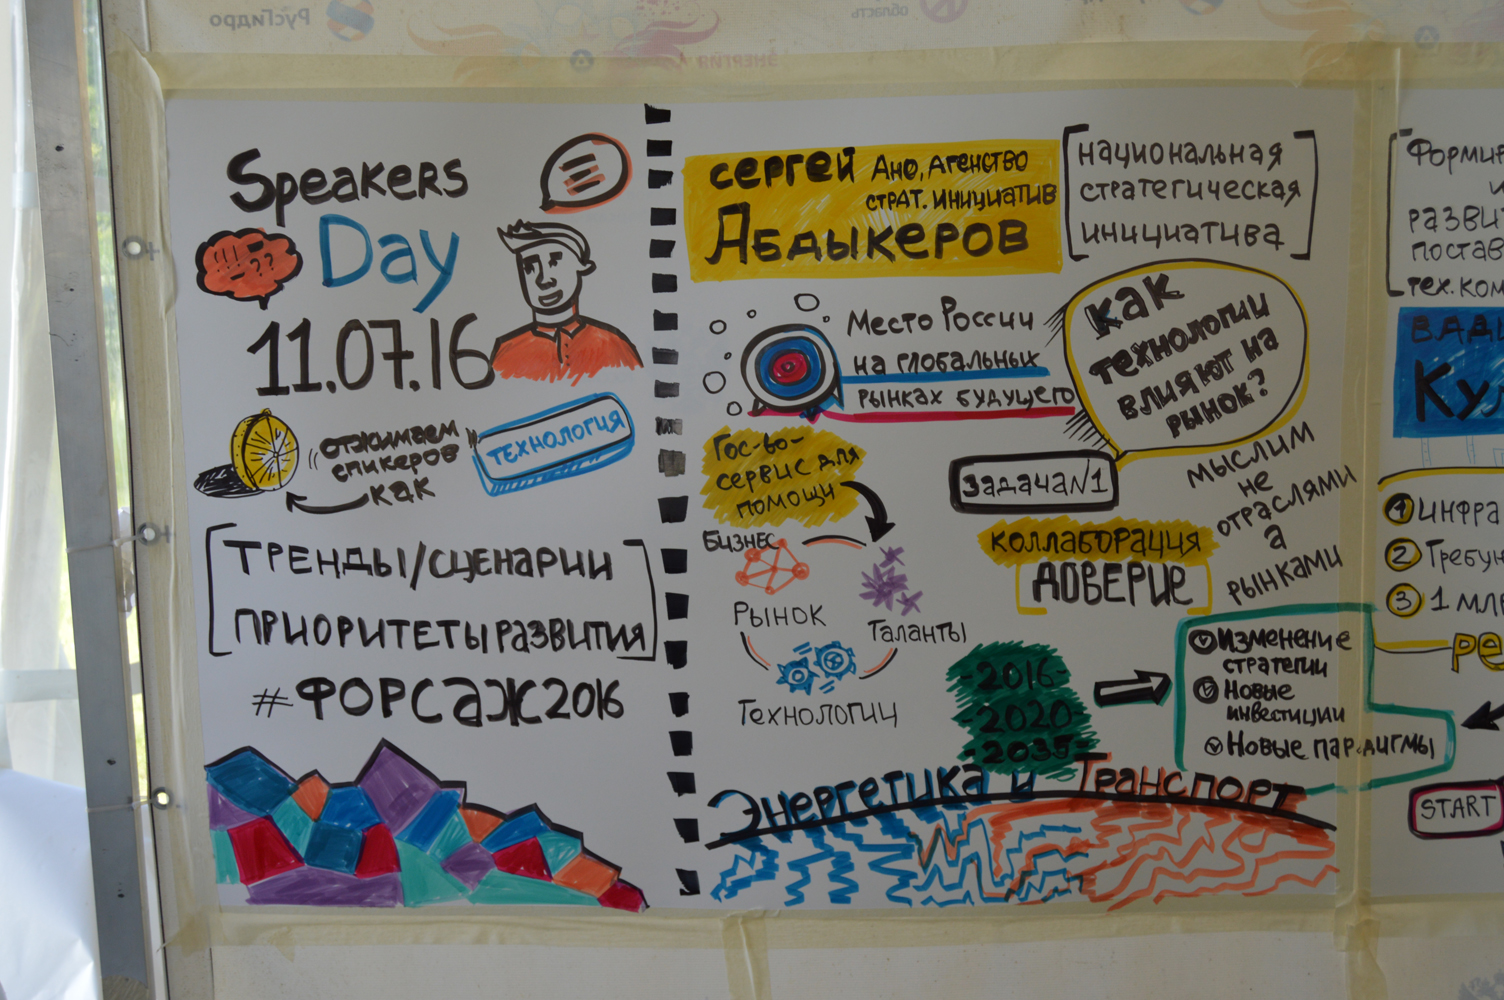 Speakers
Day
11.07.16
!!! -
- ??
отжимаем
спикеров
как
технология
Тренды/сценарии
приоритеты развития
#ФОРСАЖ2016
Сергей
Абдыкеров
Ано, Агенство
страт. инициатив
национальная
стратегическая
инициатива
Место России
на глобальных
рынках будущего
как
технологии
влияют на
рынок?
Гос-во-
сервис для
помощи
Бизнес
Рынок
Таланты
Технологии
Задача №1
мыслим
не
отраслями
а
рынками
коллаборация
доверие
-2016-
-2020-
-2035-
Изменение
стратегии
Новые
инвестиции
Новые парадигмы
Энергетика и Транспорт
Форми
разви
постав
тех. ком
Вади
Ку
1 инфра
2 Требу
3 1 мл
Ре
START
РусГидро
область
Энергия